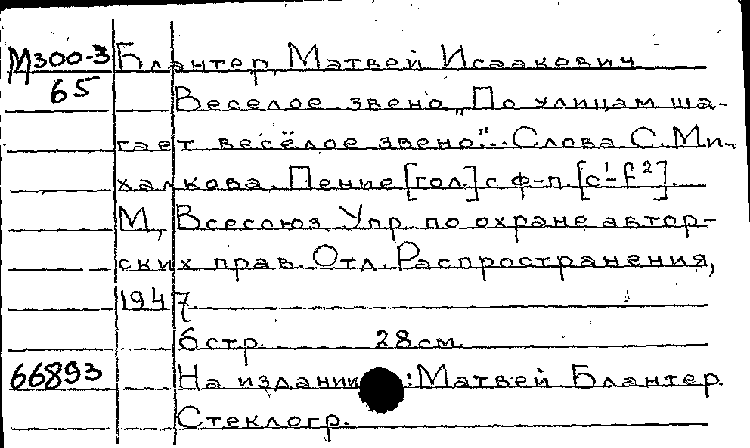 М300-3 Блантер, Матвей Исаакович
65 Веселое звено „По улицам ша-
гает весёлое звено". Слова С. Ми-
халкова. Пение [гол.] с ф-п. [c¹-f²]
М., Всесоюз. Упр. по охране автор-
ских прав. Отл. Распространения,
1947.
6 стр. 28 см.
66893 На издании: Матвей Блантер
Стеклогр.